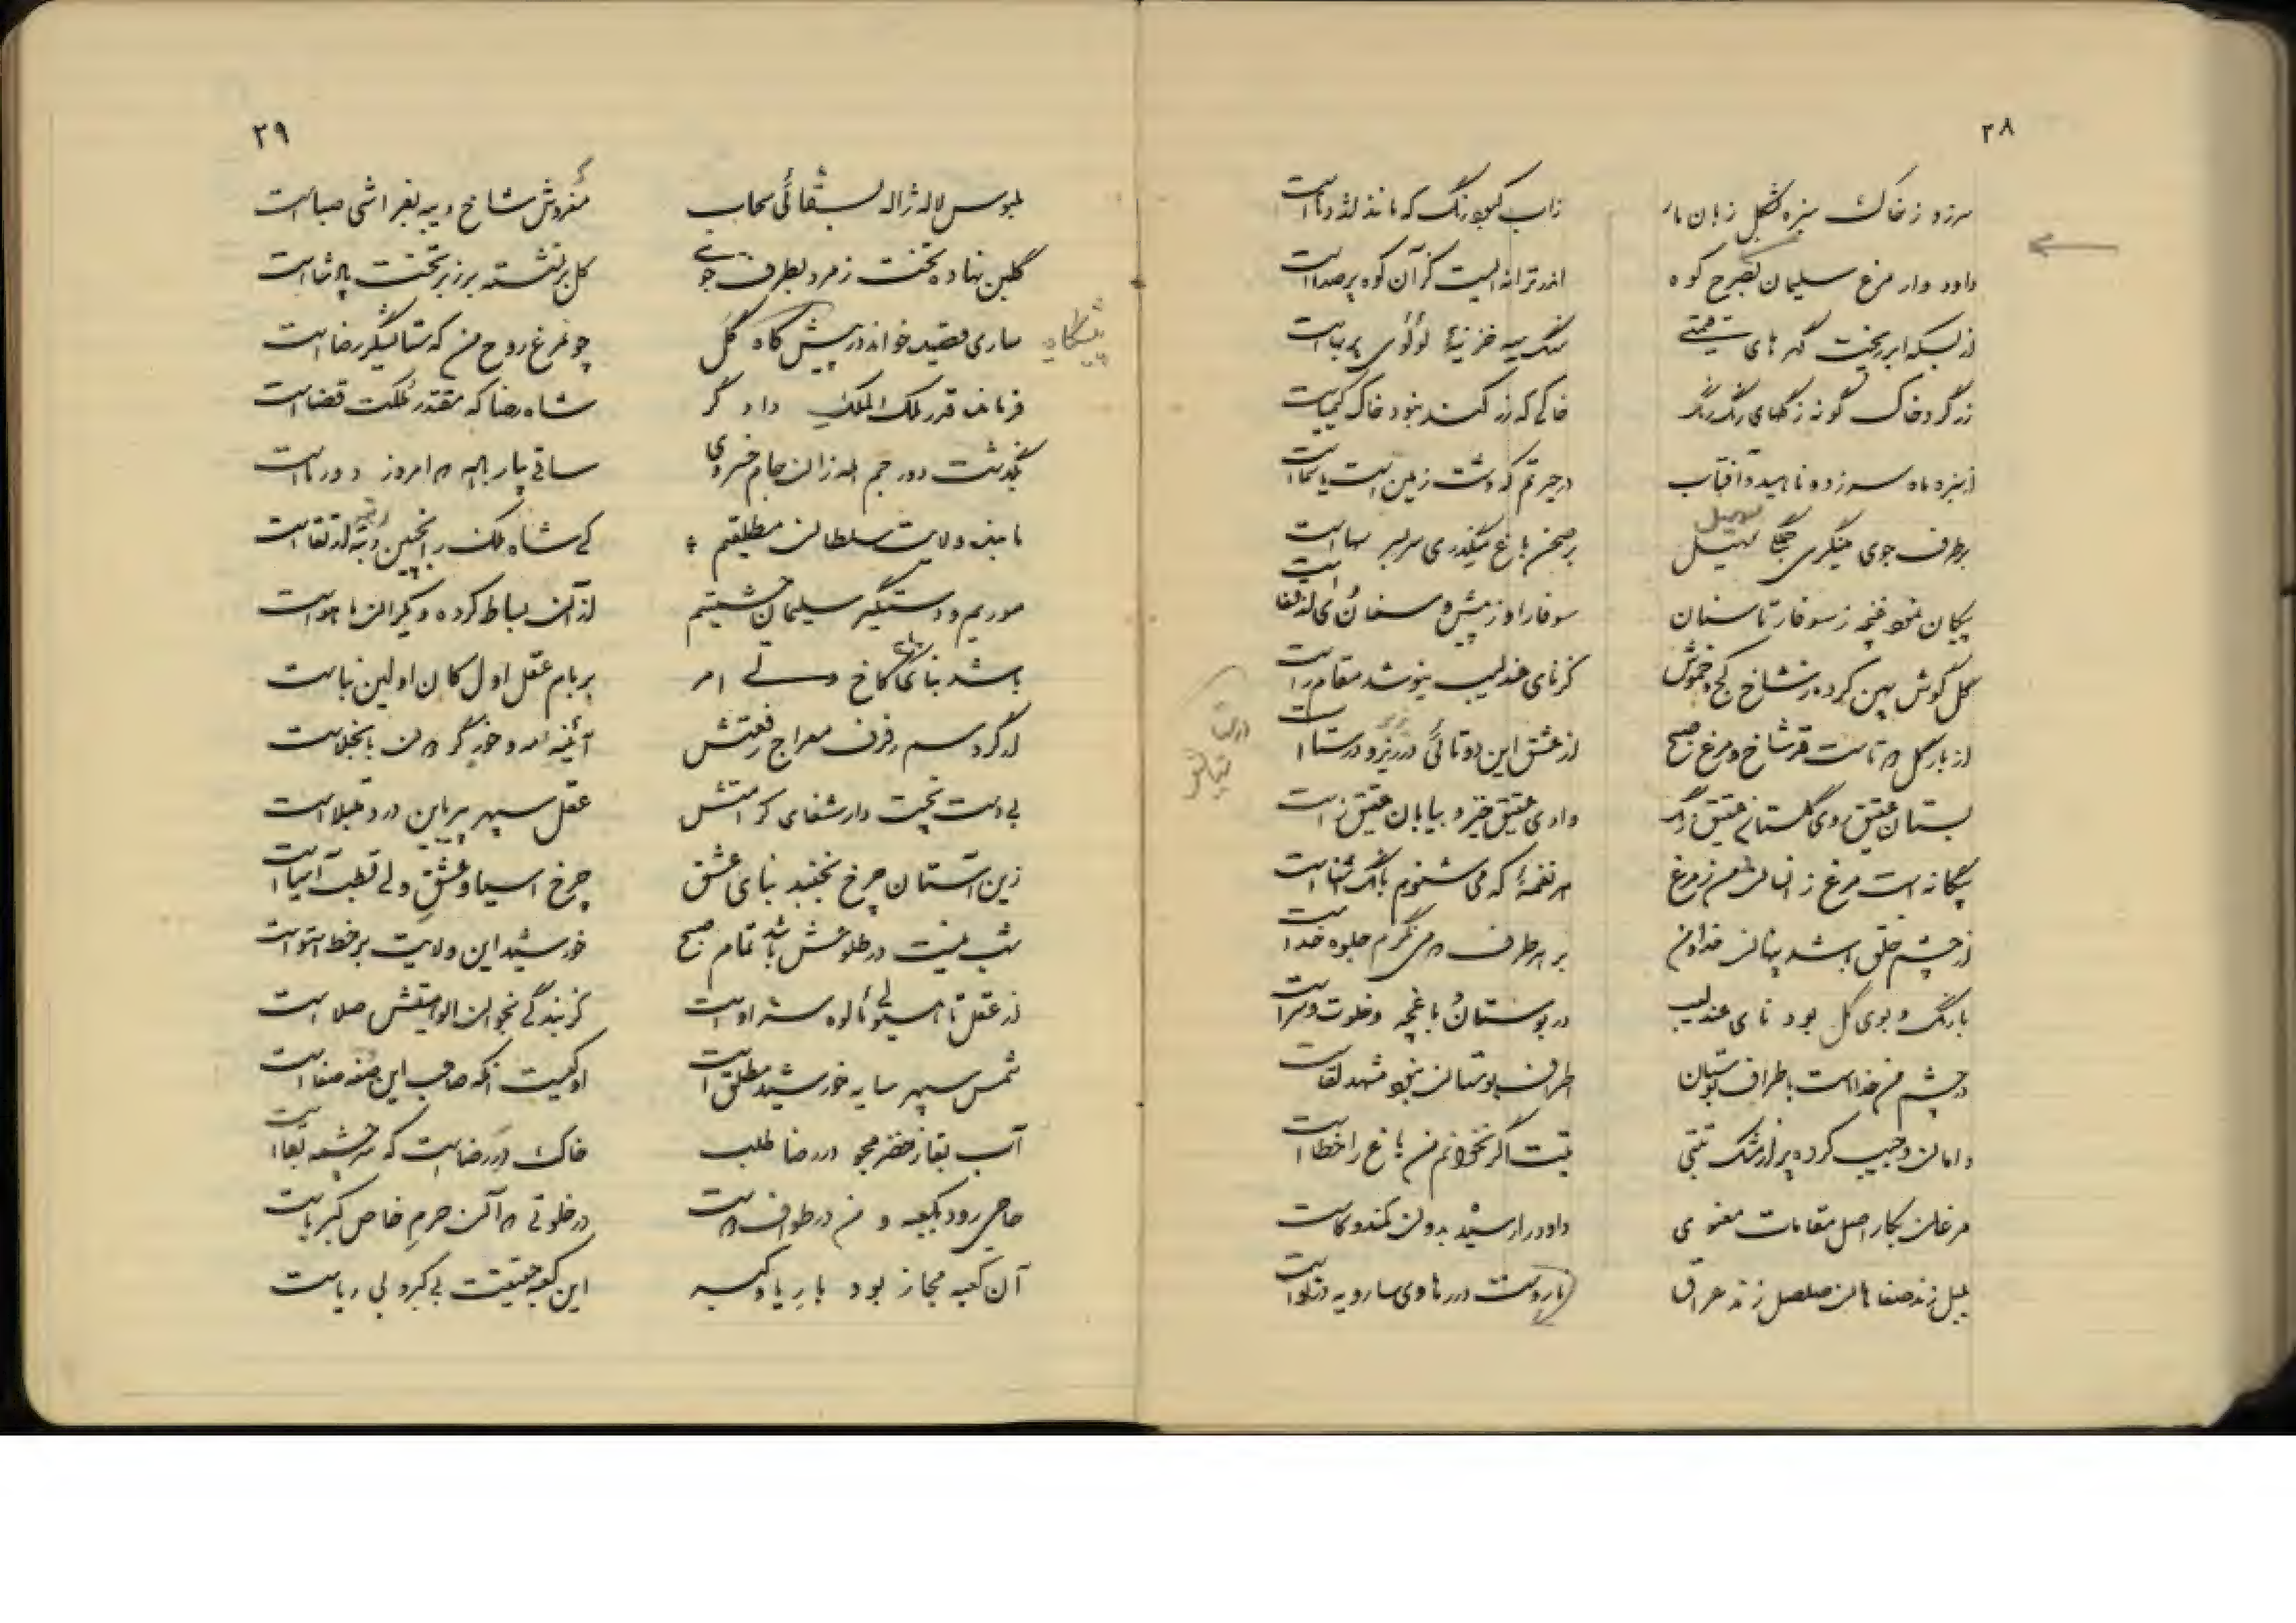 ۲۸
سرزد ز خاک سبزه بشکل زبان مار
زاب کبود رنگ که مانند اژدهاست
داود وار مرغ سلیمان بصرح کوه
اندر ترانه ایست کز آن کوه پر صداست
از بسکه ابر ریخت گهر های قیمتی
سنگ سیه خزینهٔ لؤلؤی پر بهاست
زر گرد خاک گونه ز گلهای رنگ رنگ
خاکی که زر کند نبود خاک کیمیاست
از سبزه ماه سر زده ناهید و آفتاب
در حیرتم که دشت زمین است یا سماست
بر طرف جوی مینگری جلگا سهیل
سهیل
بر صحن باغ میگذری سر بسر سهاست
پیکان نمود غنچه ز سوفار تا سنان
سوفار او ز پیش و سنان
گل گوش پهن کرده ز شاخ کج و خموش
کز نای عندلیب نیوشد مقام راست
از بار گل دو تاست قد شاخ و مرغ صبح
از عشق این دوتائی در زیر و در ستاست
بستان عقیق روی گلستان عقیق رنگ
وادی عقیق خیز و بیابان عقیق زاست
بیگانه است مرغ ز انسان من ز مرغ
هر نغمهٔ که می شنوم بانگ آشناست
از چشم خلق باشد پنهان خدا و من
بر هر طرف که می نگرم جلوه خداست
با رنگ و بوی گل بود نای عندلیب
در بوستان باغچه در خلوت و سراست
در چشم من خداست باطراف بوستان
اطراف بوستان نبود مشهد لقاست
دامان و جیب کرده پر از مشک تبتی
تبت اگر نخوانم من باغ را خطاست
مرغان بکار اصل مقامات معنوی
داود را رسید بدون کم و کاست
بلبل زند صفاهان صلصل زند عراق
ساروست در رهاوی سارویه در نواست
درست
۲۹
ملبوس لاله ژاله بسقائی سحاب
مفروش شاخ دیبه بفراشی صباست
گلبن نهاده تخت زمرد بطرف جوی
گل بر نشسته بر زبر تخت پادشاست
ساری قصیده خواند در پیش گاه گل
پیشگاه
چو مرغ روح من که ستایشگر رضاست
فرمانده قدر ملک الملک دادگر
شاه رضا که مقتدر ملکت قضاست
بگذشت دور جم اله زان جام خسروی
ساقی بیار باده که امروز دور ماست
مائیم و ولایت سلطان مطلقیم
کی شاه ملک را بچنین رتبه ارتقاست
موریم و دستگیر سلیمان حشمتیم
از آن بساط کرده و بگران ما هواست
باشد بنای کاخ ولی امر
بر بام عقل اول کان اولین بناست
از گرد سم رفرف معراج رفعتش
آئینه امرد خور گردون با جلاست
بی دست تخت دار شفای کرامتش
عقل سپهر پیر باین درد مبتلاست
زین آستان چرخ نجنبد بنای عشق
چرخ آسیا و عشق ولی قطب آسیاست
شب نیست در طلوعش باشد تمام صبح
خورشید این ولایت بر خط استواست
از عقل تا هیولی مألوه سر اوست
کز بندگی نخوان الوهیتش صلاست
شمس سپهر سایه خورشید مطلق است
او کیست آنکه صاحب این صفه صفاست
آب بقا ز خضر مجو در رضا طلب
خاک در رضاست که سر چشمه بقاست
حاجی رود بکعبه و من در طواف دوست
در خلوتی که آن حرم خاص کبریاست
آن کعبه مجاز بود با ریا و کبر
این کعبه حقیقت بی کبر و بی ریاست